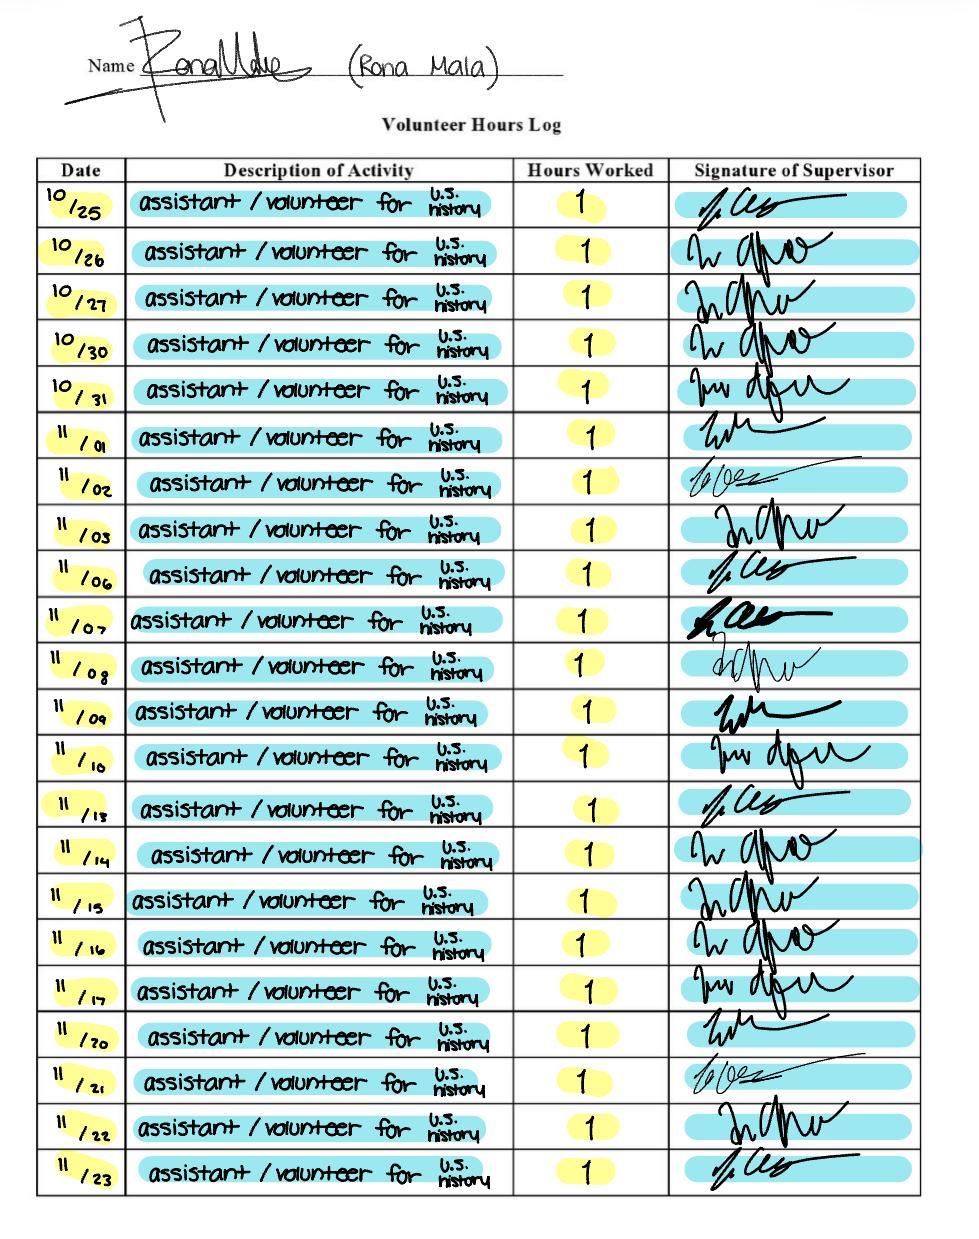 Name Rona Mala (Rona Mala)
Volunteer Hours Log
Date Description of Activity Hours Worked Signature of Supervisor
10/25 assistant / volunteer for U.S. history 1
10/26 assistant / volunteer for U.S. history 1
10/27 assistant / volunteer for U.S. history 1
10/30 assistant / volunteer for U.S. history 1
10/31 assistant / volunteer for U.S. history 1
11/01 assistant / volunteer for U.S. history 1
11/02 assistant / volunteer for U.S. history 1
11/03 assistant / volunteer for U.S. history 1
11/06 assistant / volunteer for U.S. history 1
11/07 assistant / volunteer for U.S. history 1
11/08 assistant / volunteer for U.S. history 1
11/09 assistant / volunteer for U.S. history 1
11/10 assistant / volunteer for U.S. history 1
11/13 assistant / volunteer for U.S. history 1
11/14 assistant / volunteer for U.S. history 1
11/15 assistant / volunteer for U.S. history 1
11/16 assistant / volunteer for U.S. history 1
11/17 assistant / volunteer for U.S. history 1
11/20 assistant / volunteer for U.S. history 1
11/21 assistant / volunteer for U.S. history 1
11/22 assistant / volunteer for U.S. history 1
11/23 assistant / volunteer for U.S. history 1